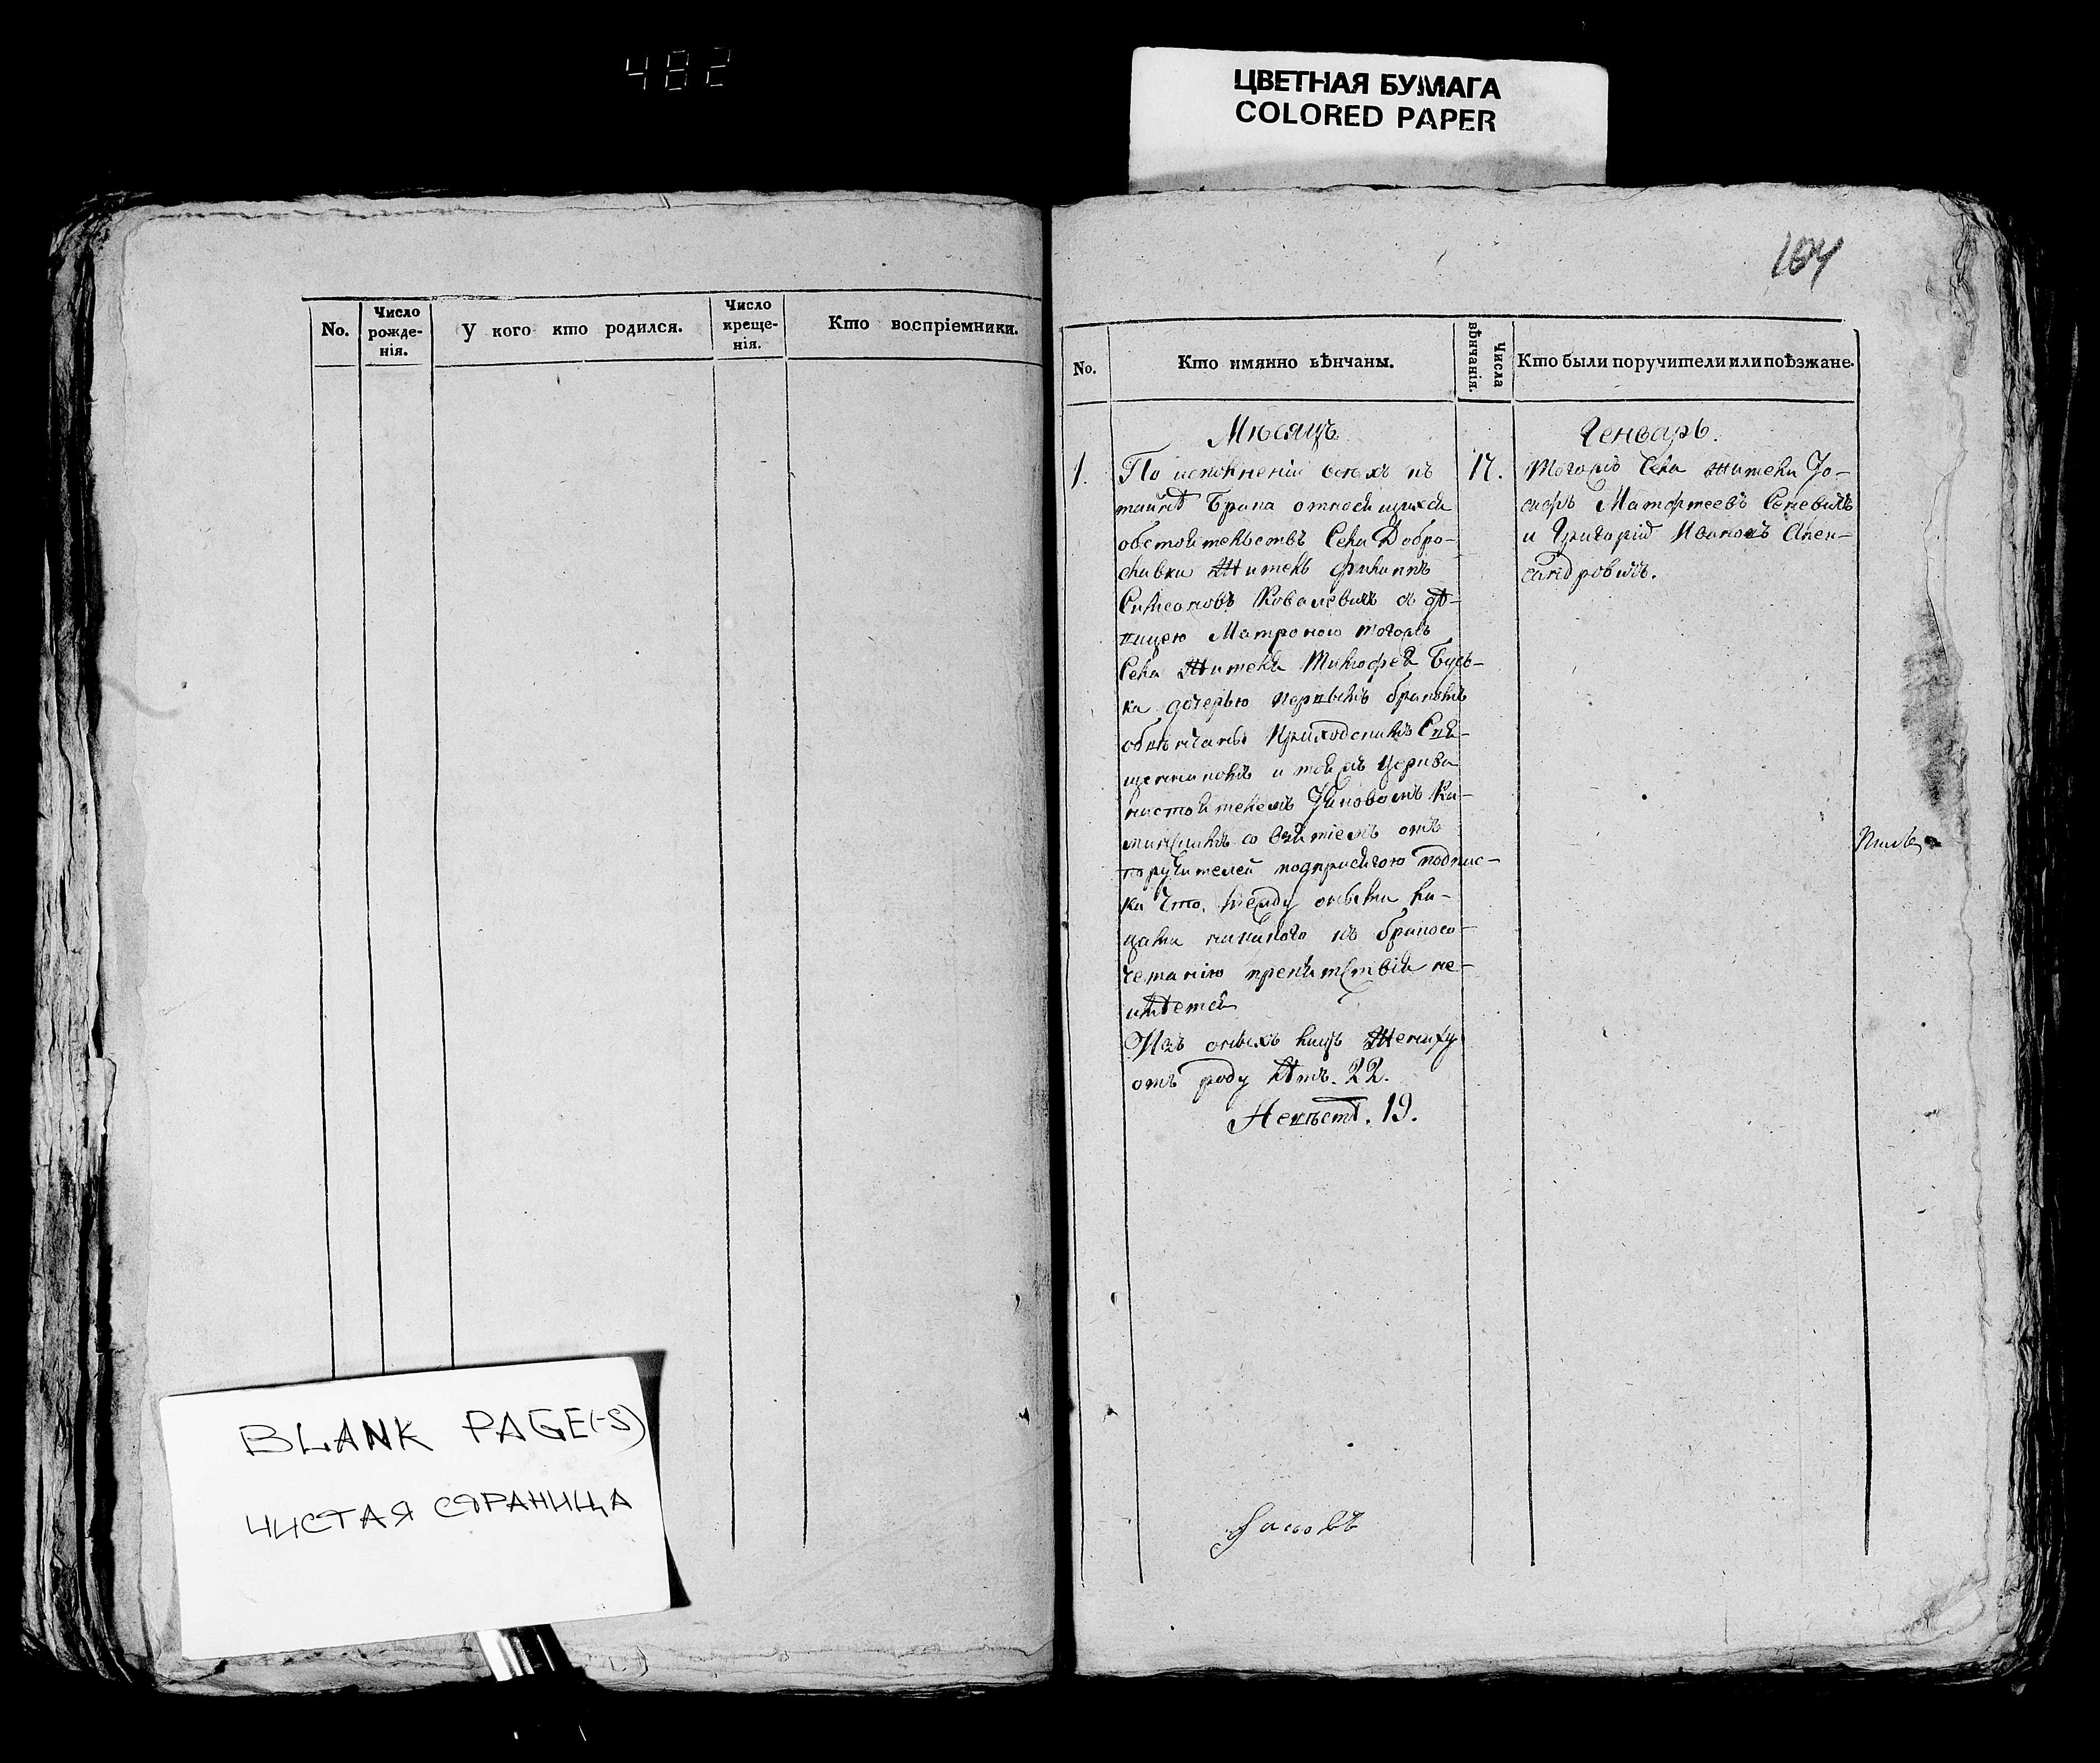 482
ЦВЕТНАЯ БУМАГА
COLORED PAPER
No.
Число рожде-нія.
У кого кто родился.
Число креще-нія.
Кто воспріемники.
BLANK PAGE(-S)
ЧИСТАЯ СТРАНИЦА
164
No.
Кто имянно вѣнчаны.
Числа вѣнчанія.
Кто были поручители или поѣзжане.
Мѣсяцъ
Генварь.
1.
По исполненіи всехъ къ
тайнѣ брака относящихся
обстоятельствъ Села Добро-
славки житель Филиппъ
Симеоновъ Ковалевичъ съ дѣ-
вицею Матроною тогожъ
Села жителя Тимофея Бусь-
ка дочерью первымъ бракомъ
обвѣнчаны Приходскимъ Свя-
щенникомъ и тояжъ Церкви
настоятелемъ Яковомъ Ка-
минскимъ со взятіемъ отъ
поручителей подприсягою подпис-
ки что между оными ли-
цами никакого къ бракосо-
четанію препятствія не-
имѣется
Изъ оныхъ лицъ Жениху
отъ роду лѣтъ. 22.
Невѣстѣ. 19.
17.
Тогожъ Села жители Іо-
сифъ Матфеевъ Сеневичъ
и Григорій Ивановъ Алек-
сандровичъ.